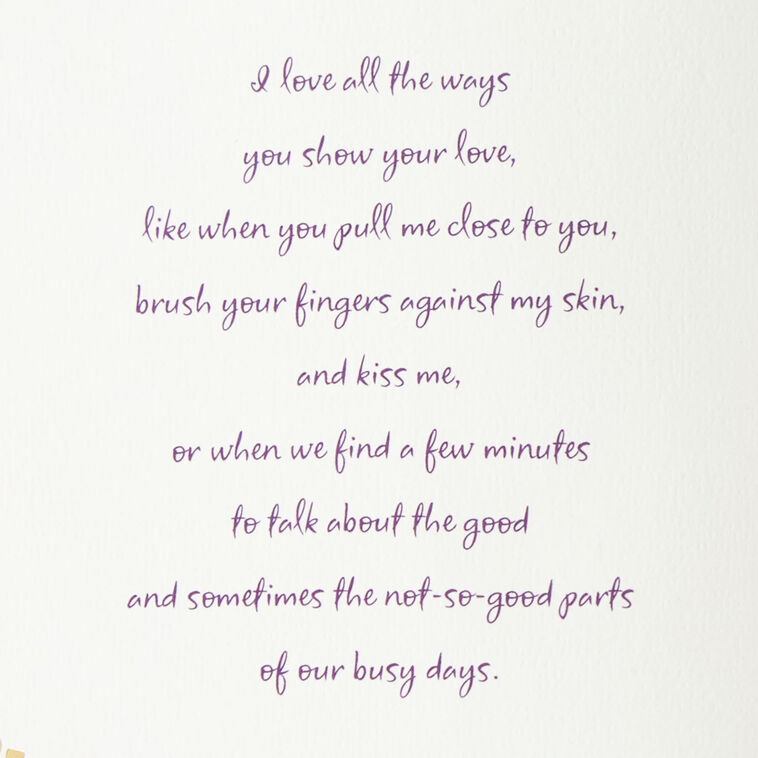 I love all the ways
you show your love,
like when you pull me close to you,
brush your fingers against my skin,
and kiss me,
or when we find a few minutes
to talk about the good
and sometimes the not-so-good parts
of our busy days.